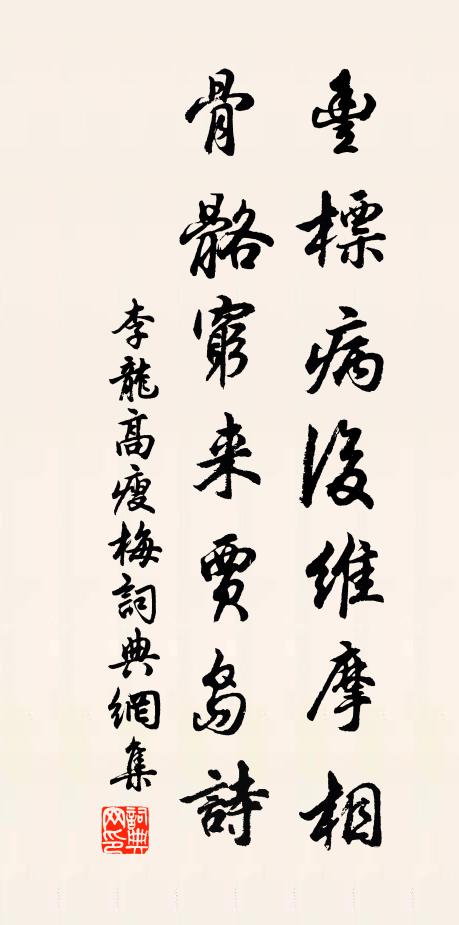 豐標病後維摩相
骨骼窮来賈島詩
李龍高瘦梅詞典網集
詞典網印